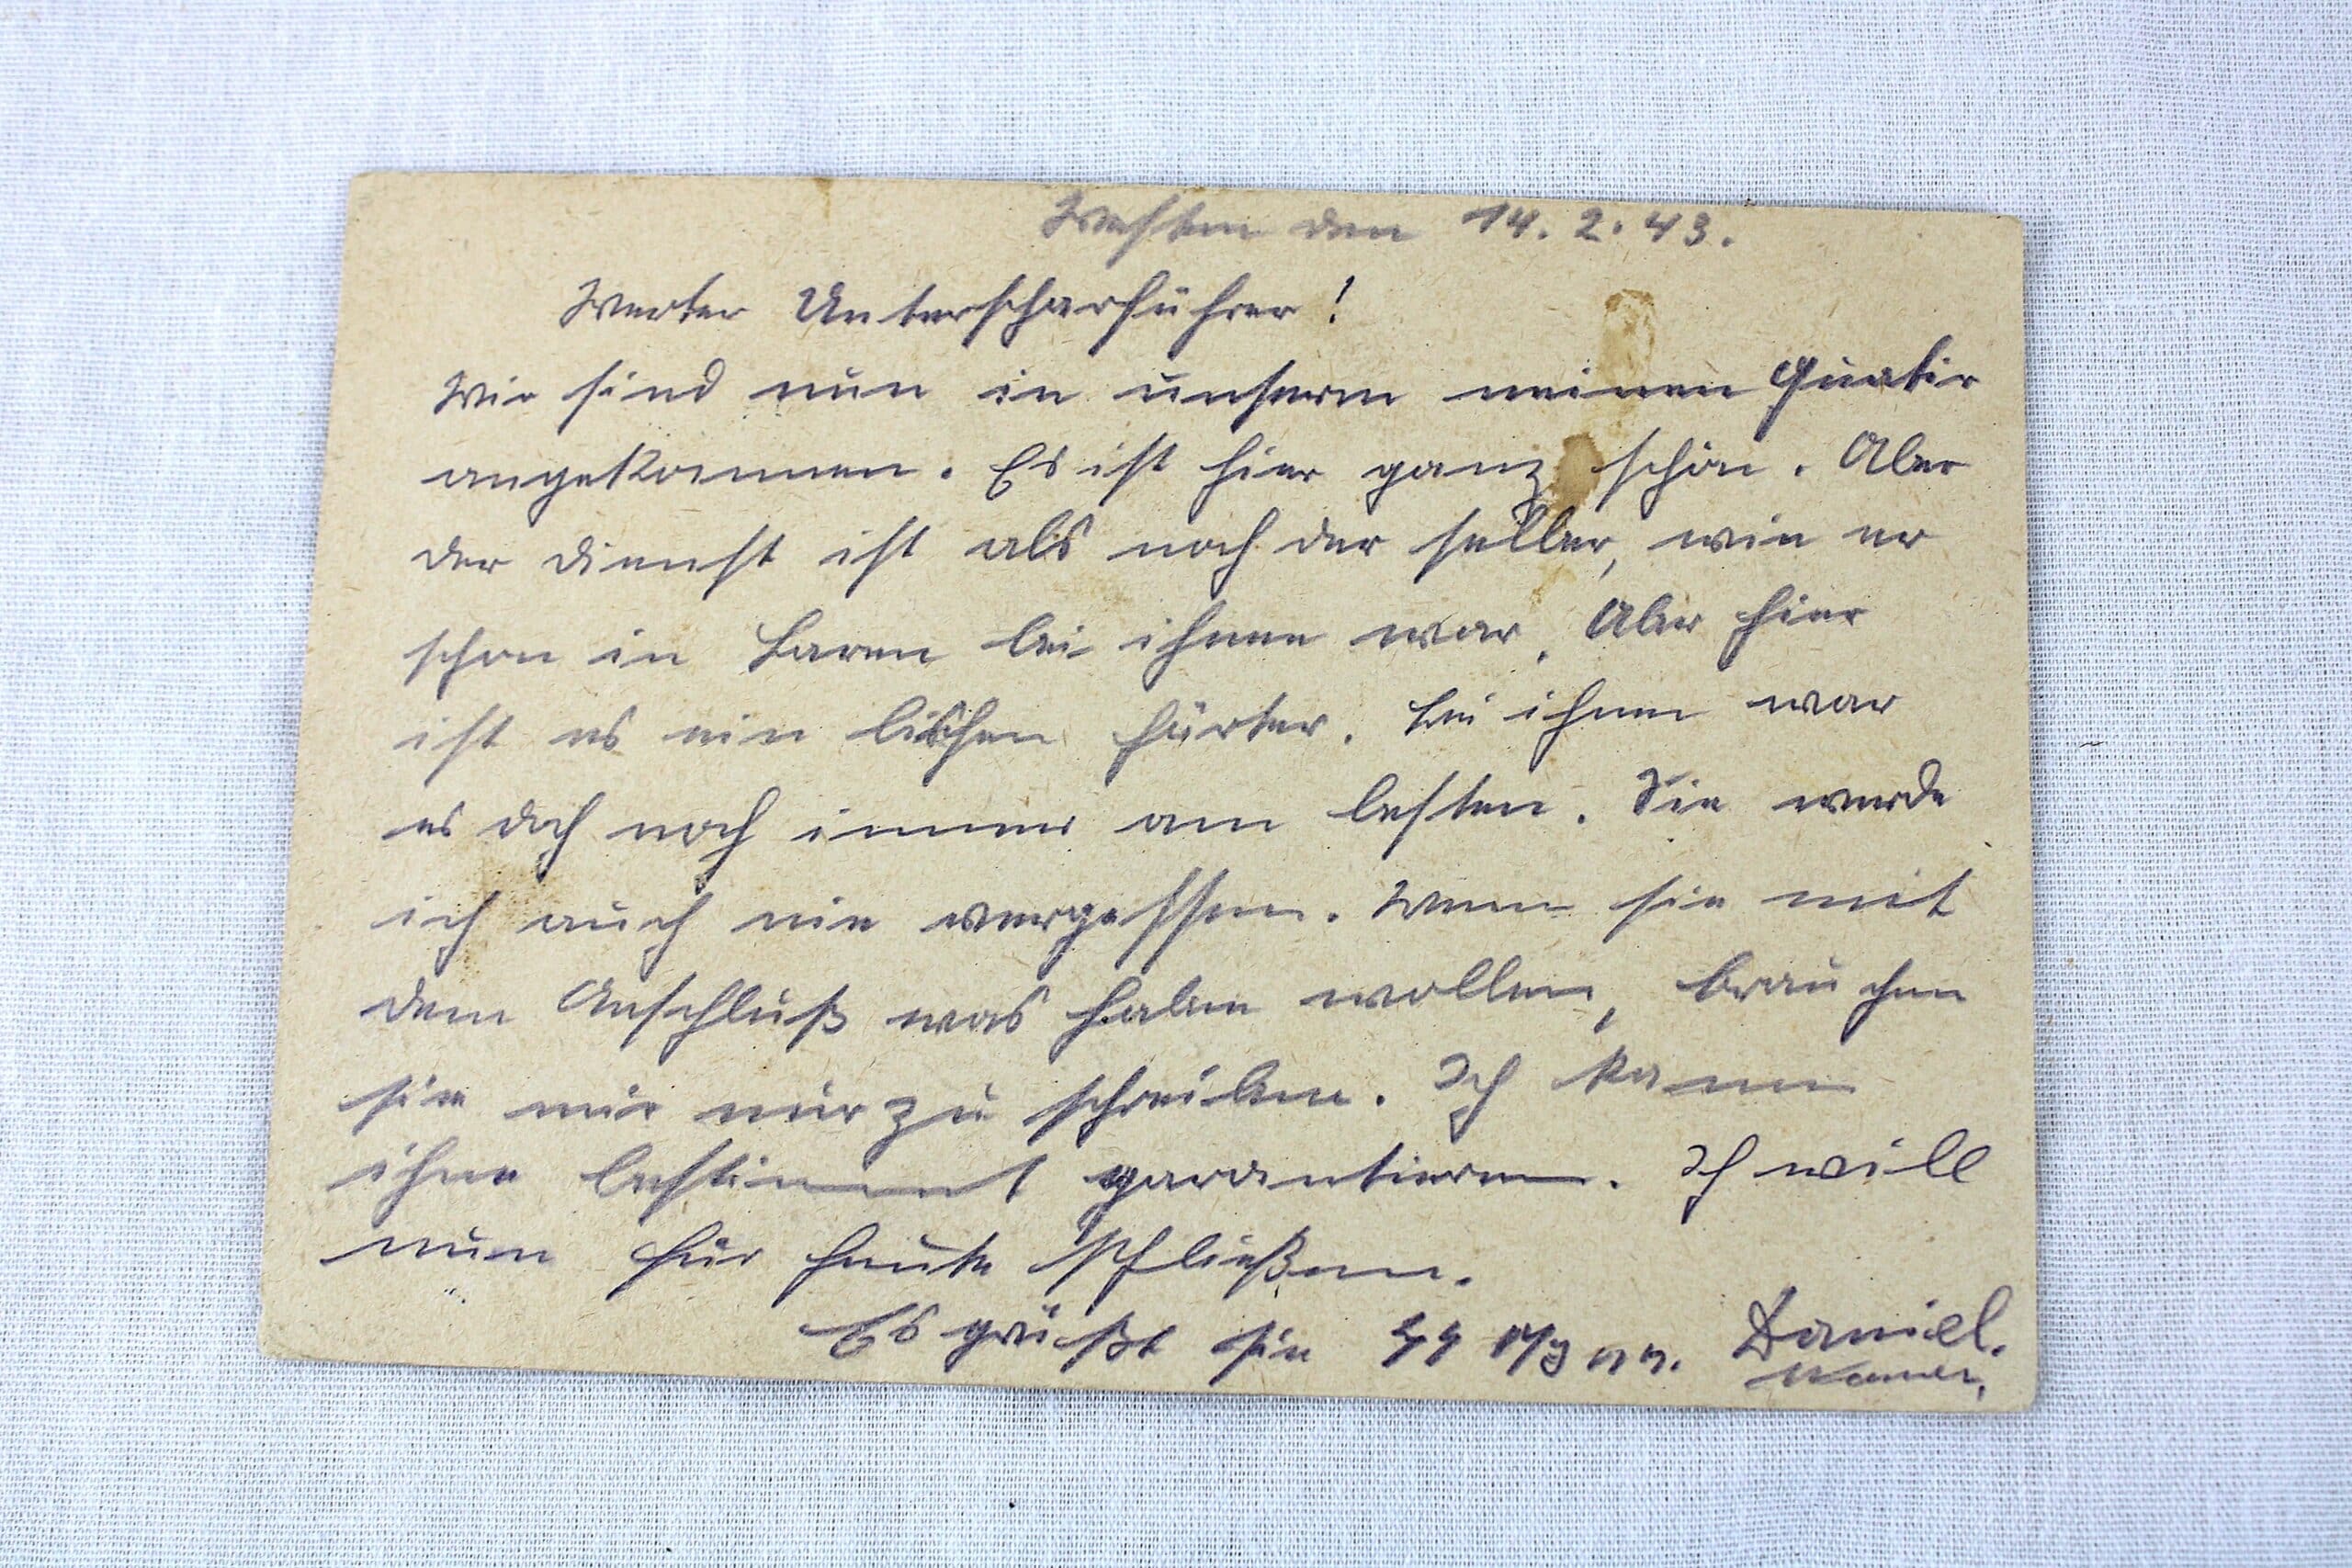 Westen den 14. 2. 43.
Werter Unterscharführer!
Wir sind nun in unserem neinen Quatir
angekommen. Es ist hier ganz schön. Aber
der Dienst ist als noch der selber, wie er
schon in Laren bei ihnen war. Aber hier
ist es ein bischen härter. Bei ihnen war
es doch noch immer am besten. Sie werde
ich auch nie vergessen. Wenn sie mit
dem Anschluß was haben wollen, brauchen
sie mir nur zu schreiben. Ich kann
ihne bestimmt garantieren. Ich will
nun für heute schließen.
Es grüßt sie SS Daniel.